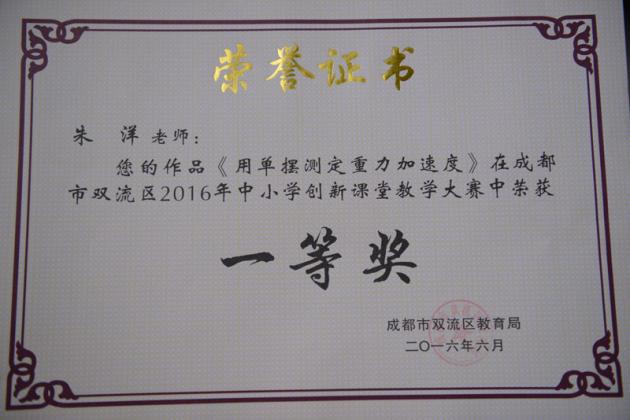 荣誉证书
朱 洋 老师：
您的作品《用单摆测定重力加速度》在成都
市双流区2016年中小学创新课堂教学大赛中荣获
一等奖
成都市双流区教育局
二〇一六年六月